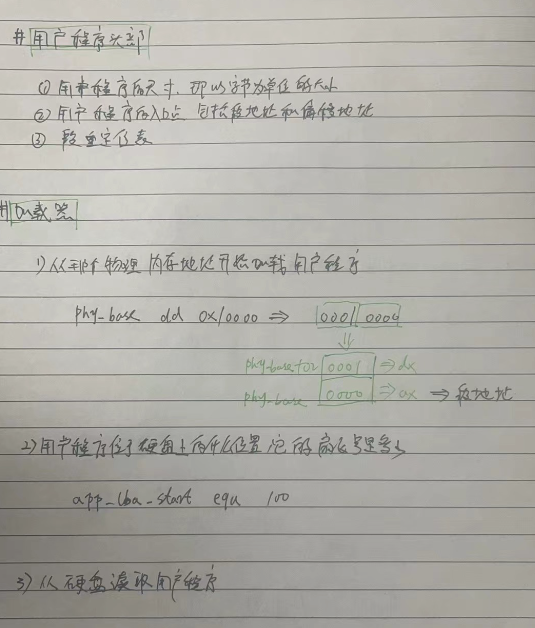 # 用户程序头部
① 用户程序的尺寸，即以字节为单位的大小
② 用户程序的入口点 包括段地址和偏移地址
③ 段重定位表
# 加载器
1) 从哪个物理内存地址开始加载用户程序
phy_base dd 0x10000 ⇒ 0001 0000
⇓
phy_base+02 0001 ⇒ dx
phy_base 0000 ⇒ ax ⇒ 段地址
2) 用户程序位于硬盘上的什么位置 它的扇区号是多少
app_lba_start equ 100
3) 从硬盘读取用户程序